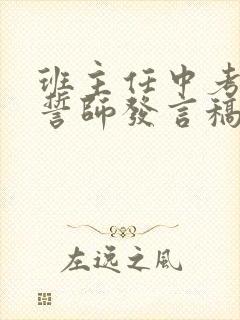 班主任中考
誓師發言稿
左逸之風